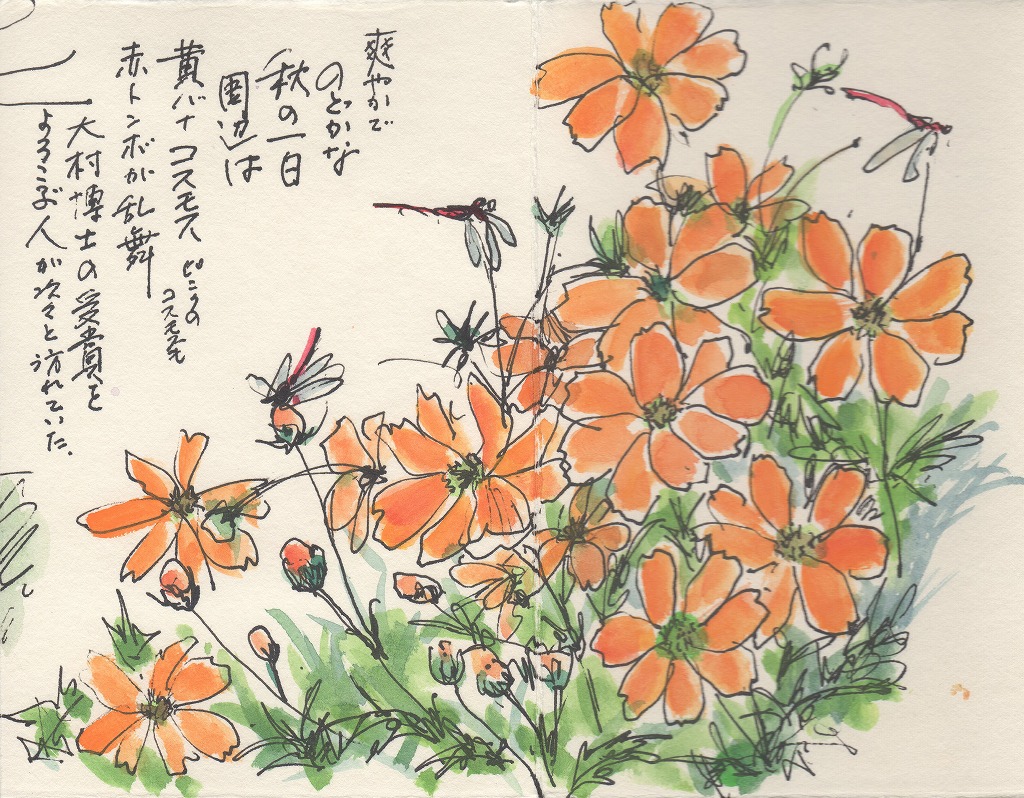 爽やかで
のどかな
秋の一日
周辺は
黄バナコスモス ピンクの
コスモスも
赤トンボが乱舞
大村博士の受賞を
よろこぶ人が次々と訪れていた。